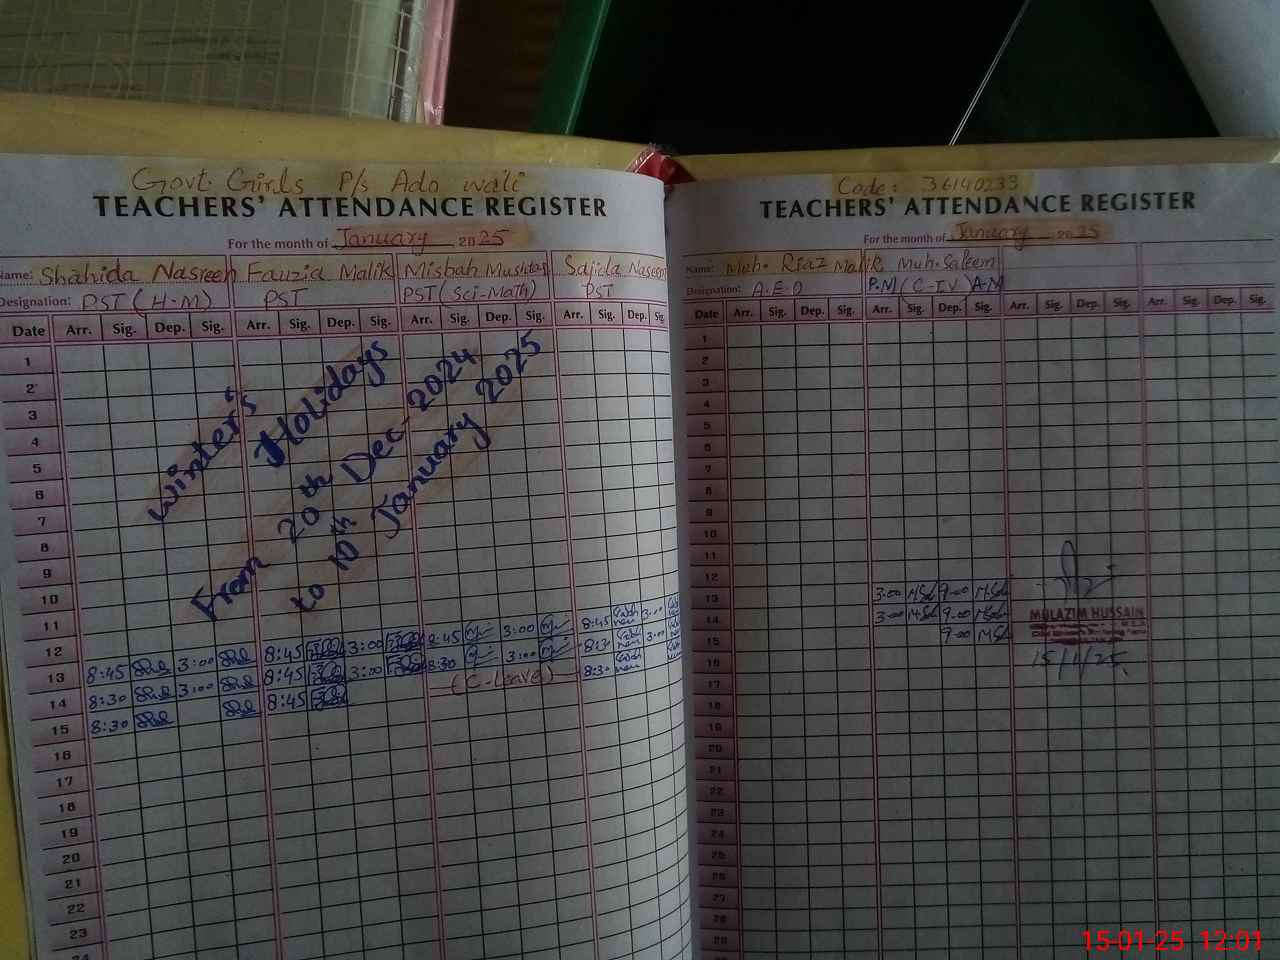 Govt. Girls P/s Ado wali
TEACHERS' ATTENDANCE REGISTER
For the month of January 2025
Name: Shahida Nasreen Fauzia Malik Misbah Mushtaq Sajida Naseem
Designation: PST (H.M) PST PST (Sci-Math) PST
Date Arr. Sig. Dep. Sig. Arr. Sig. Dep. Sig. Arr. Sig. Dep. Sig. Arr. Sig. Dep. Sig.
1
2
3
4
5
6
7
8
9
10
11
12
winter's Holidays
From 20th Dec-2024
to 10th January 2025
13 8:45 3:00 8:45 3:00 8:45 3:00 8:45 3:00
14 8:30 3:00 8:45 3:00 8:30 3:00 8:30 3:00
15 8:30 8:45 (C-leave) 8:30
16
17
18
19
20
21
22
23
24
Code: 36140233
TEACHERS' ATTENDANCE REGISTER
For the month of January 2025
Name: Muh. Riaz Malik Muh. Saleem
Designation: A.E.O P.M (C-IV) A.M
Date Arr. Sig. Dep. Sig. Arr. Sig. Dep. Sig. Arr. Sig. Dep. Sig. Arr. Sig. Dep. Sig.
1
2
3
4
5
6
7
8
9
10
11
12
13 3:00 9:00
14 3:00 9:00
15 9:00
MULAZIM HUSSAIN
15/1/25
16
17
18
19
20
21
22
23
24
25
26
27
28
15-01-25 12:01